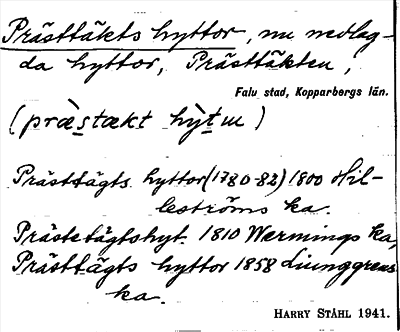 Prästtäkts hyttor, nu nedlag-
da hyttor, Prästtäkten,
Falu stad, Kopparbergs län.
(præstækt hỳtur)
Prästtägts hyttor (1780-82) 1800 Hil-
leströms ka.
Prästetägtshyt. 1810 Wermings ka,
Prästtägts hyttor 1858 Liunggrens
ka.
HARRY STÅHL 1941.